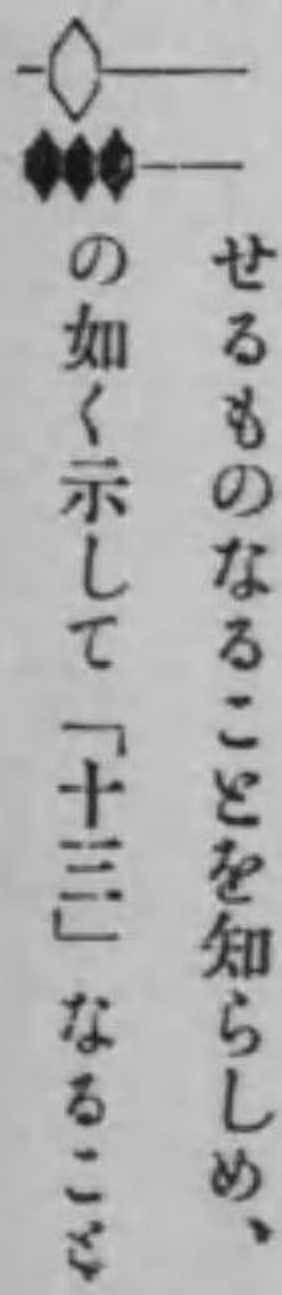 せるものなることを知らしめ、
の如く示して「十三」なること